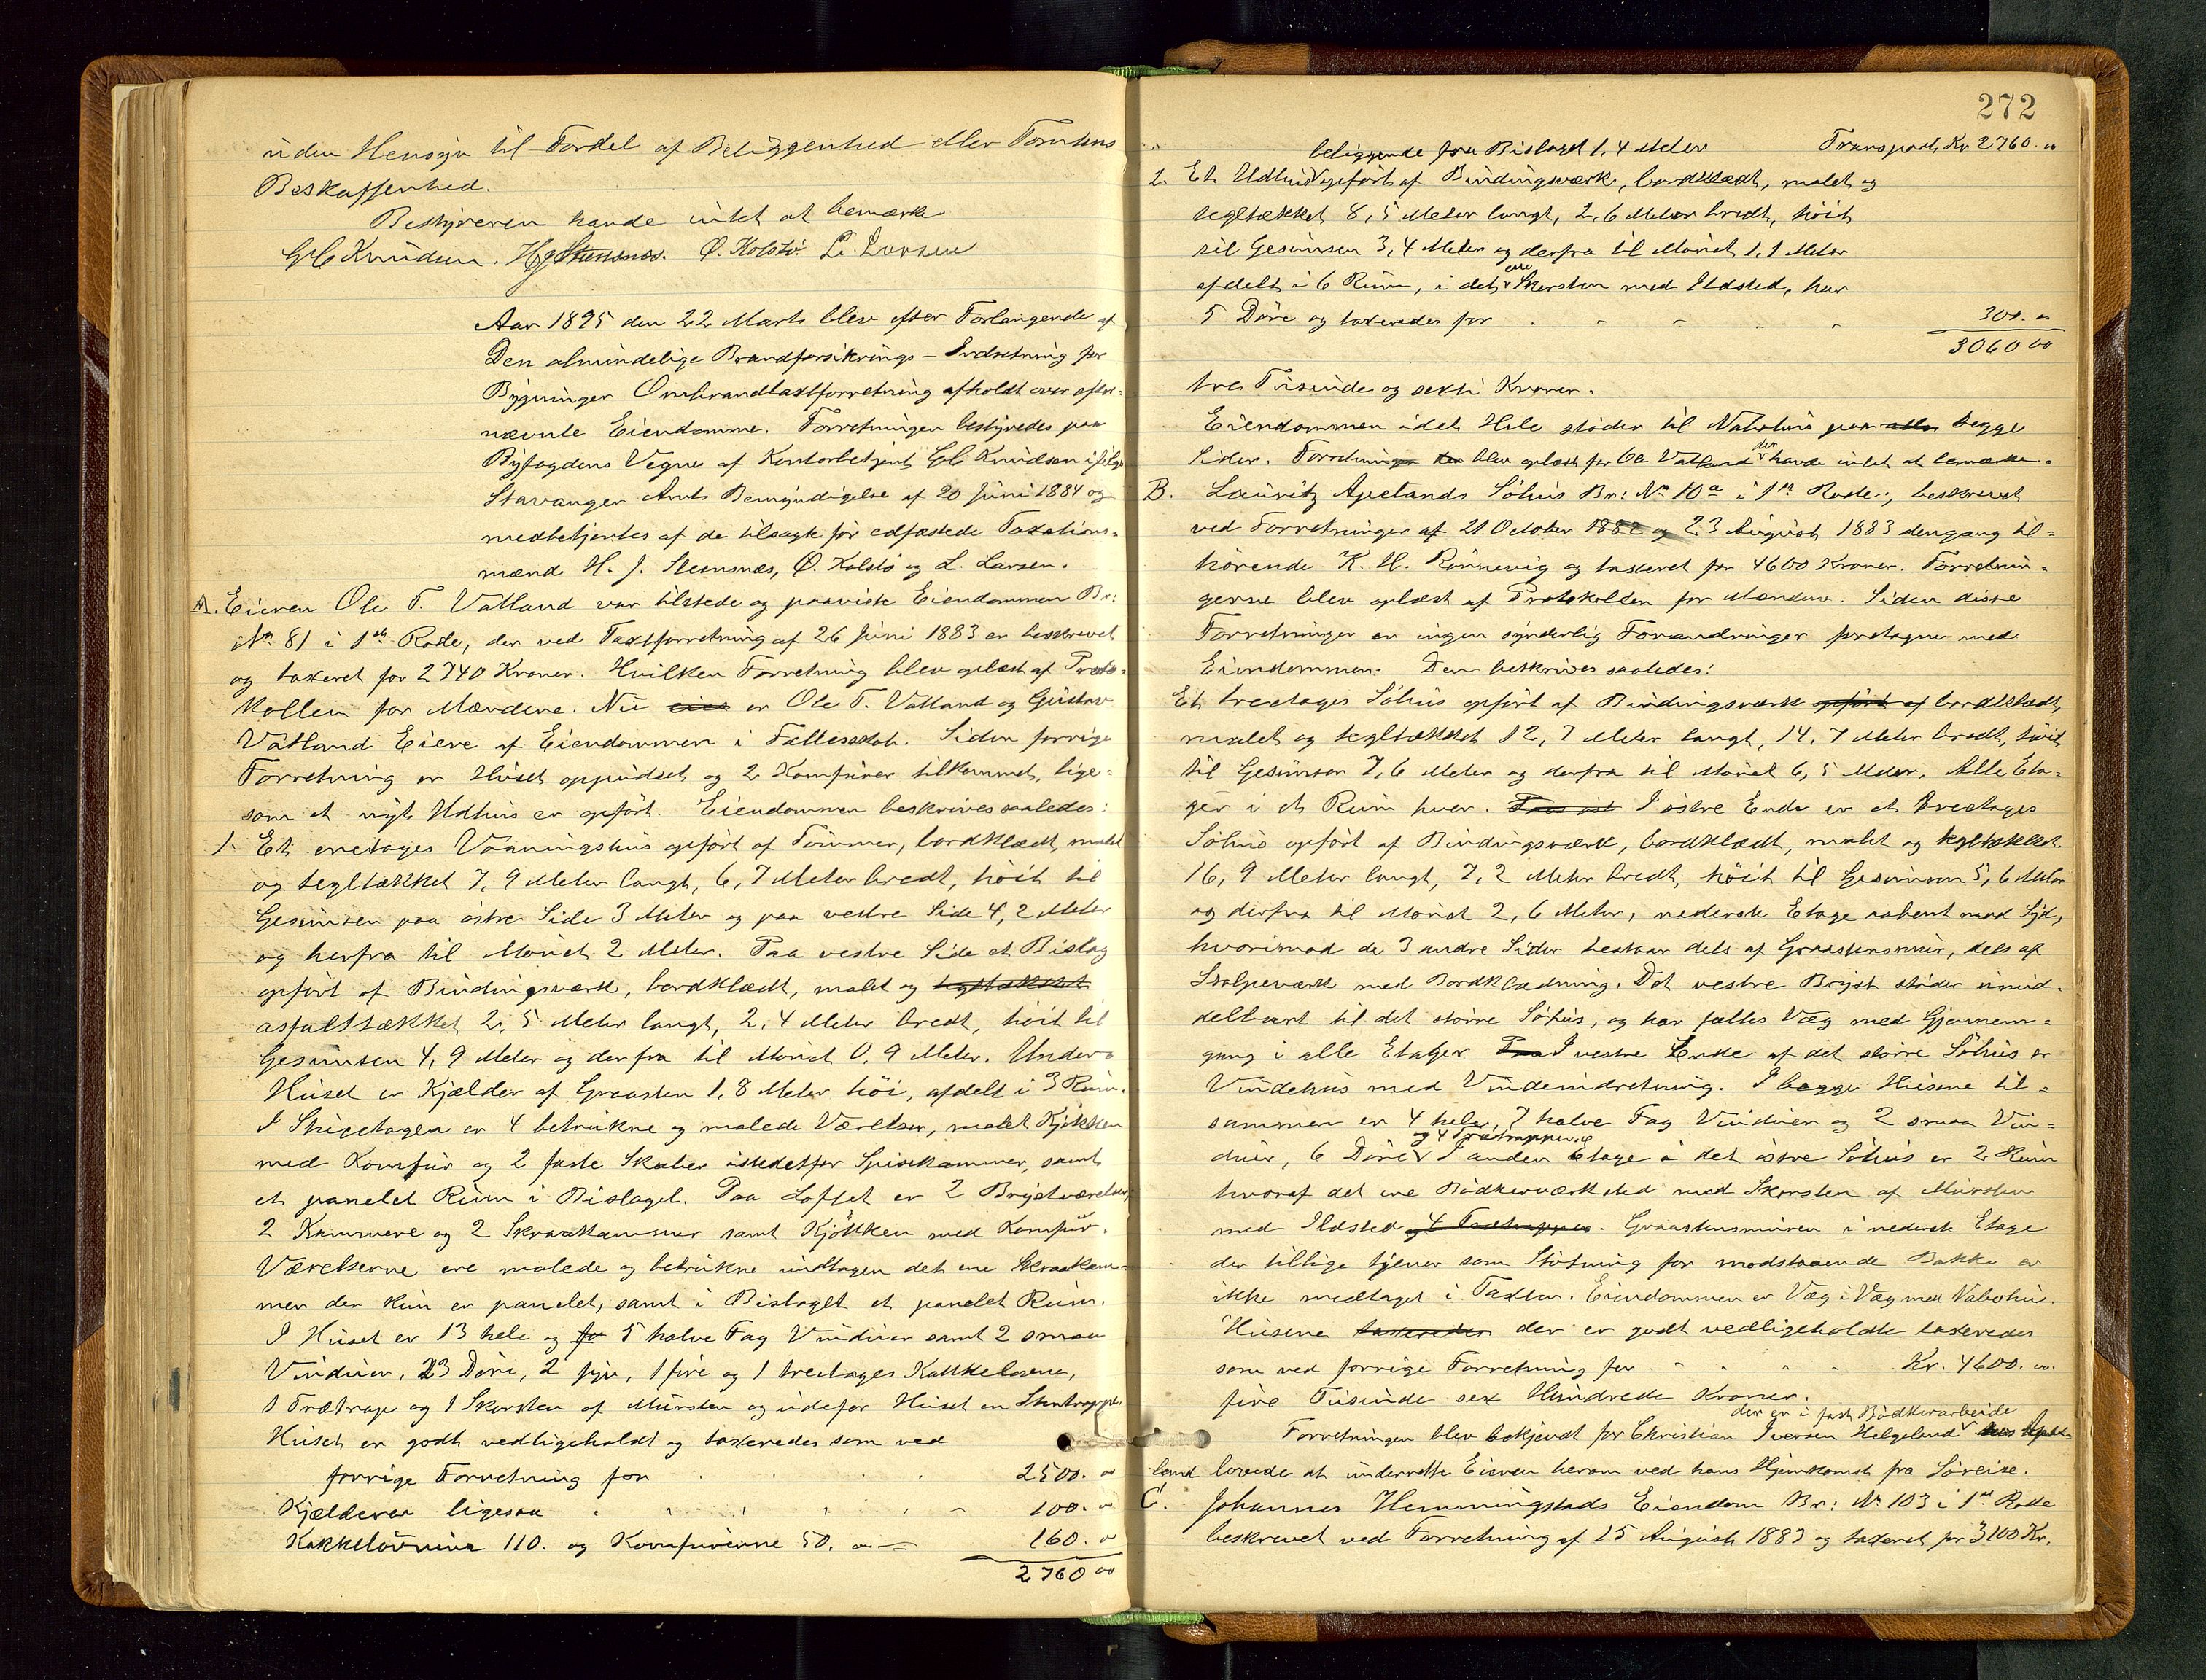 uden Hensyn til Fordel af Beliggenhed eller Tomtens
Beskaffenhed.
Bestyreren havde intet at bemærke
GC Knudsen. HJ Stensnæs. Ø. Kolstø. L. Larsen
Aar 1895 den 22 Marts blev efter Forlangende af
Den almindelige Brandforsikrings-Indretning for
Bygninger Ombrandtaxtforretning afholdt over efter=
nævnte Eiendomme. Forretningen bestyredes paa
Byfogdens Vegne af Kontorbetjent GC Knudsen ifølge
Stavanger Amts Bemyndigelse af 20 Juni 1884 og
medbetjentes af de tilsagte før edfæstede Taxations=
mænd H. J. Stensnæs, Ø. Kolstø og L. Larsen.
A. Eieren Ole T. Vatland var tilstede og paaviste Eiendommen Br:
No 81 i 1ste Rode, der ved Taxtforretning af 26 Juni 1883 er beskrevet
og taxeret for 2740 Kroner. Hvilken Forretning blev oplæst af Proto=
kollen for Mændene. Nu eies er Ole T. Vatland og Gustav
Vatland Eiere af Eiendommen i Fællesskab. Siden forrige
Forretning er Huset oppudset og 2 Komfurer tilkommet, lige=
som et nyt Udhus er opført. Eiendommen beskrives saaledes:
1. Et enetages Vaaningshus opført af Tømmer, bordklædt, malet
og tegltækket 7,9 Meter langt, 6,7 Meter bredt, høit til
Gesimsen paa østre Side 3 Meter og paa vestre Side 4,2 Meter
og herfra til Mønet 2 Meter. Paa vestre Side et Bislag
opført af Bindingsværk, bordklædt, malet og tegltækket
asfalttækket 2,5 Meter langt, 2,4 Meter bredt, høit til
Gesimsen 4,9 Meter og derfra til Mønet 0,9 Meter. Under
Huset er Kjælder af Graasten 1,8 Meter høi, afdelt i 3 Rum.
I Stueetagen er 4 betrukne og malede Værelser, malet Kjøkken
med Komfur og 2 faste Skabe istedetfor Spisekammer, samt
et panelet Rum i Bislaget. Paa Loftet er 2 Brystværelser
2 Kammere og 2 Skraakammer samt Kjøkken med Komfur.
Værelserne ere malede og betrukne undtagen det ene Skraakam=
mer der kun er panelet, samt i Bislaget et panelet Rum.
I Huset er 13 hele og fo 5 halve Fag Vinduer samt 2 smaa
Vinduer, 23 Døre, 2 fyr, 1 fire og 1 treetages Kakkelovne,
1 Trætrap og 1 Skorsten af Mursten og udefor Huset en Stentrappe.
Huset er godt vedligeholdt og taxeredes som ved
forrige Forretning for 2500. 00
Kjælderen ligesaa 100. 00
Kakkelovnene 110. og Komfurerne 50. 00 160. 00
2760 00
272
beliggende fra Bislaget 1,4 Meter Transport Kr 2760. 00
2. Et Udhus opført af Bindingsværk, bordklædt, malet og
tegltækket 8,5 Meter langt, 2,6 Meter bredt, høit
til Gesimsen 3,4 Meter og derfra til Mønet 1,1 Meter
afdelt i 6 Rum, i det ene Skorsten med Ildsted, har
5 Døre og taxeredes for 300. 00
3060 00
tre Tusinde og sexti Kroner.
Eiendommen idet Hele støder til Nabohus paa alle begge
Sider. Forretningen blev oplæst for Ole Vatland der havde intet at bemærke.
B. Lauritz Apelands Søhus Br: No 10a i 1ste Rode, beskrevet
ved Forretninger af 21 October 1882 og 23 August 1883 dengang til=
hørende K. H. Rønnevig og taxeret for 4600 Kroner. Forretnin=
gerne blev oplæst af Protokollen for Mændene. Siden disse
Forretninger er ingen synderlig Forandringer foretagne med
Eiendommen. Den beskrives saaledes:
Et treetages Søhus opført af Bindingsværk opført af bordklædt,
malet og tegltækket 12,7 Meter langt, 14,7 Meter bredt, høit
til Gesimsen 7,6 Meter og derfra til Mønet 6,5 Meter. Alle Eta=
ger i et Rum hver. Paa øst I østre Ende er et treetages
Søhus opført af Bindingsværk, bordklædt, malet og tegltækket
16,9 Meter langt, 7,2 Meter bredt, høit til Gesimsen 5,6 Meter
og derfra til Mønet 2,6 Meter, nederste Etage aabent mod Syd,
hvorimod de 3 andre Sider bestaar dels af Graastensmur, dels af
Stolpeværk med Bordklædning. Det vestre Bryst støder umid=
delbart til det større Søhus, og har fælles Væg med Gjennem=
gang i alle Etager. Paa I vestre Ende af det større Søhus er
Vindehus med Vindeindretning. I begge Husene til=
sammen er 4 hele, 7 halve Fag Vinduer og 2 smaa Vin=
duer, 6 Døre og 4 Trætrapper. I anden Etage i det østre Søhus er 2 Rum
hvoraf det ene Bødkerværksted med Skorsten af Mursten
med Ildsted og 4 Trætrapper. Graastensmuren i nederste Etage
der tillige tjener som Støtning for modstaaende Bakke er
ikke medtaget i Taxten. Eiendommen er Væg i Væg med Nabohus.
Husene taxeredes der er godt vedligeholdte taxeredes
som ved forrige Forretning for Kr. 4600. 00.
fire Tusinde sex Hundrede Kroner.
der er i fast Bødkerarbeide
Forretningen blev bekjendt for Christian Iversen Helgeland hos Ape=
land lovede at underrette Eieren herom ved hans Hjemkomst fra Søreise.
C. Johannes Hemmingstads Eiendom Br: No 103 i 1ste Rode
beskrevet ved Forretning af 15 August 1883 og taxeret for 3100 Kr.